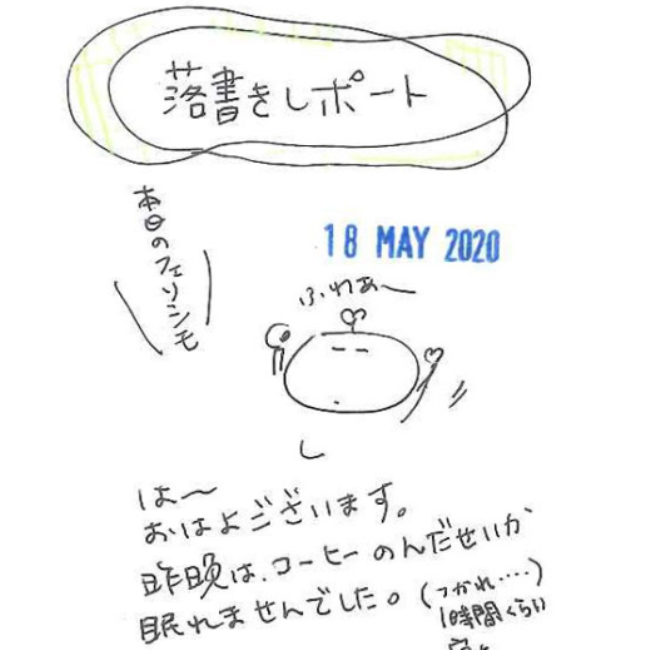 落書きレポート
本日のフェリシモ
18 MAY 2020
ふわぁ〜
は〜
おはよございます。
昨晩は、コーヒーのんだせいか
眠れませんでした。(つかれ・・・・)
1時間くらい